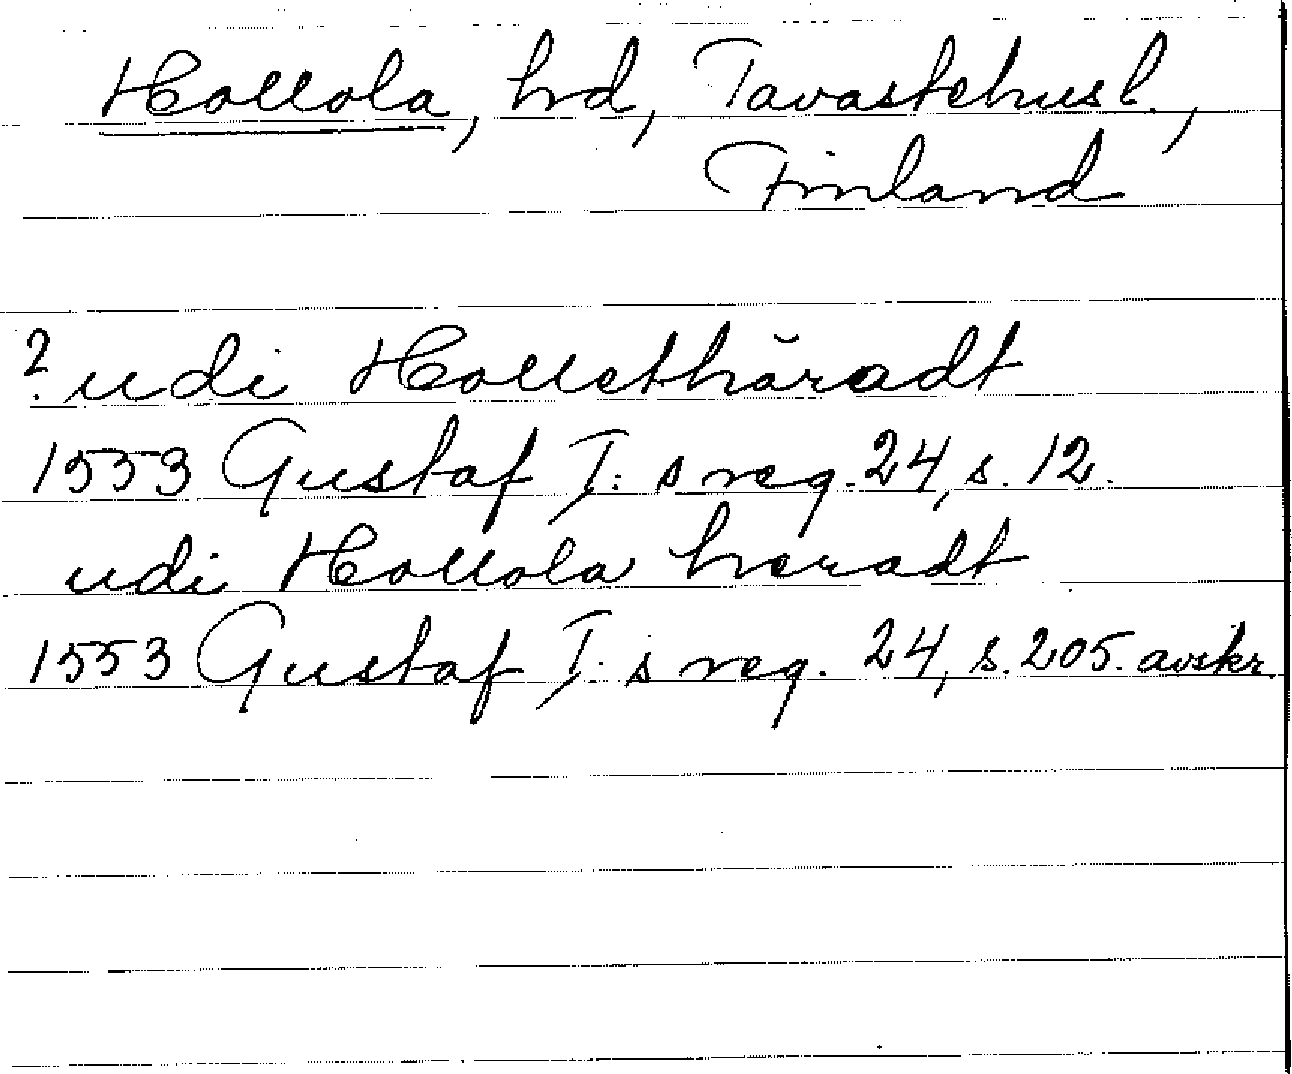 Hollola, hd, Tavastehusl.,
Finland
? udi Hollethäradt
1553 Gustaf I: s reg. 24, s. 12.
udi Hollola heradt
1553 Gustaf I: s reg. 24, s. 205. avskr.